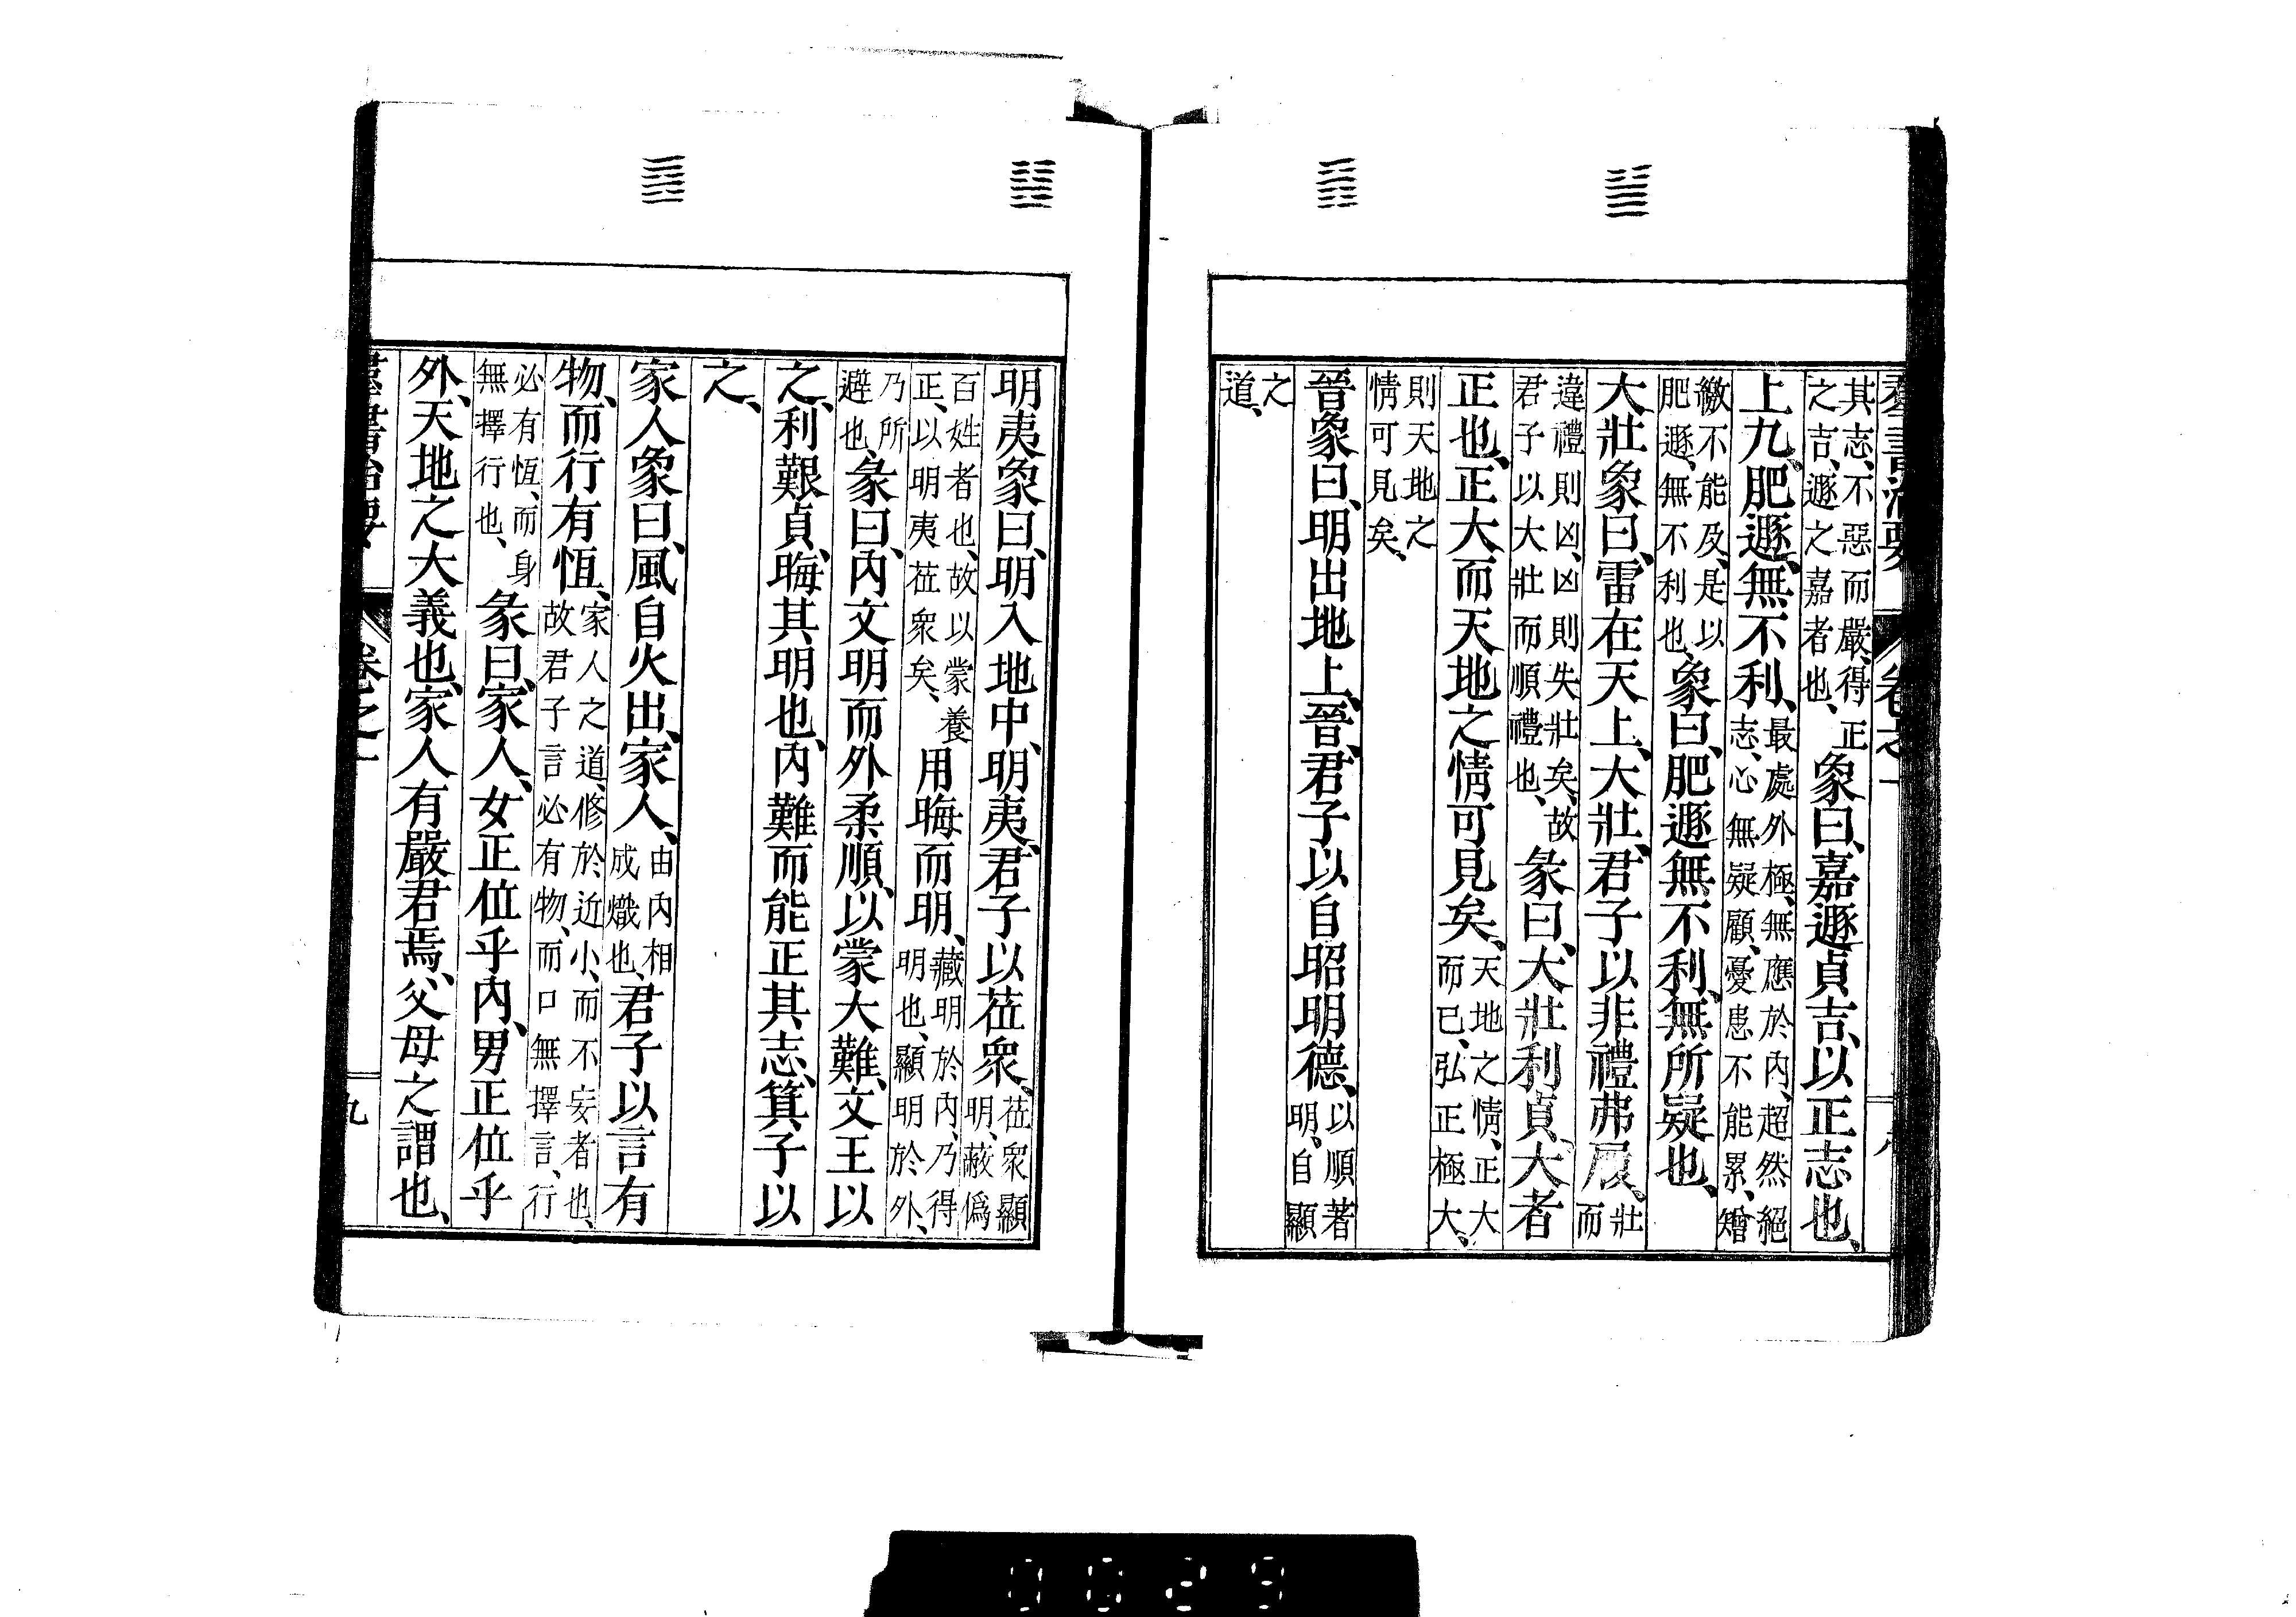 羣書治要 卷之一 八
其志、不惡而嚴、得正之吉、遯之嘉者也、象曰、嘉遯貞吉、以正志也、
上九、肥遯、無不利、最處外極、無應於內、超然絕志、心無疑顧、憂患不能累、矰
繳不能及、是以肥遯、無不利也、象曰、肥遯無不利、無所疑也、
大壯象曰、雷在天上、大壯、君子以非禮弗履、壯而
違禮則凶、凶則失壯矣、故君子以大壯而順禮也、彖曰、大壯利貞、大者
正也、正大而天地之情可見矣、天地之情、正大而已、弘正極大、
則天地之情可見矣、
晉象曰、明出地上、晉、君子以自昭明德、以順著明、自顯
之道、
明夷象曰、明入地中、明夷、君子以莅衆、莅衆顯明、蔽僞
百姓者也、故以蒙養正、以明夷莅衆矣、用晦而明、藏明於內、乃得明也、顯明於外、
乃所避也、彖曰、內文明而外柔順、以蒙大難、文王以
之、利艱貞、晦其明也、內難而能正其志、箕子以
之、
家人象曰、風自火出、家人、由內相成熾也、君子以言有
物、而行有恆、家人之道、修於近小、而不妄者也、故君子言必有物、而口無擇言、行
必有恆、而身無擇行也、彖曰、家人、女正位乎內、男正位乎
外、天地之大義也、家人有嚴君焉、父母之謂也、
羣書治要 卷之一 九
0029